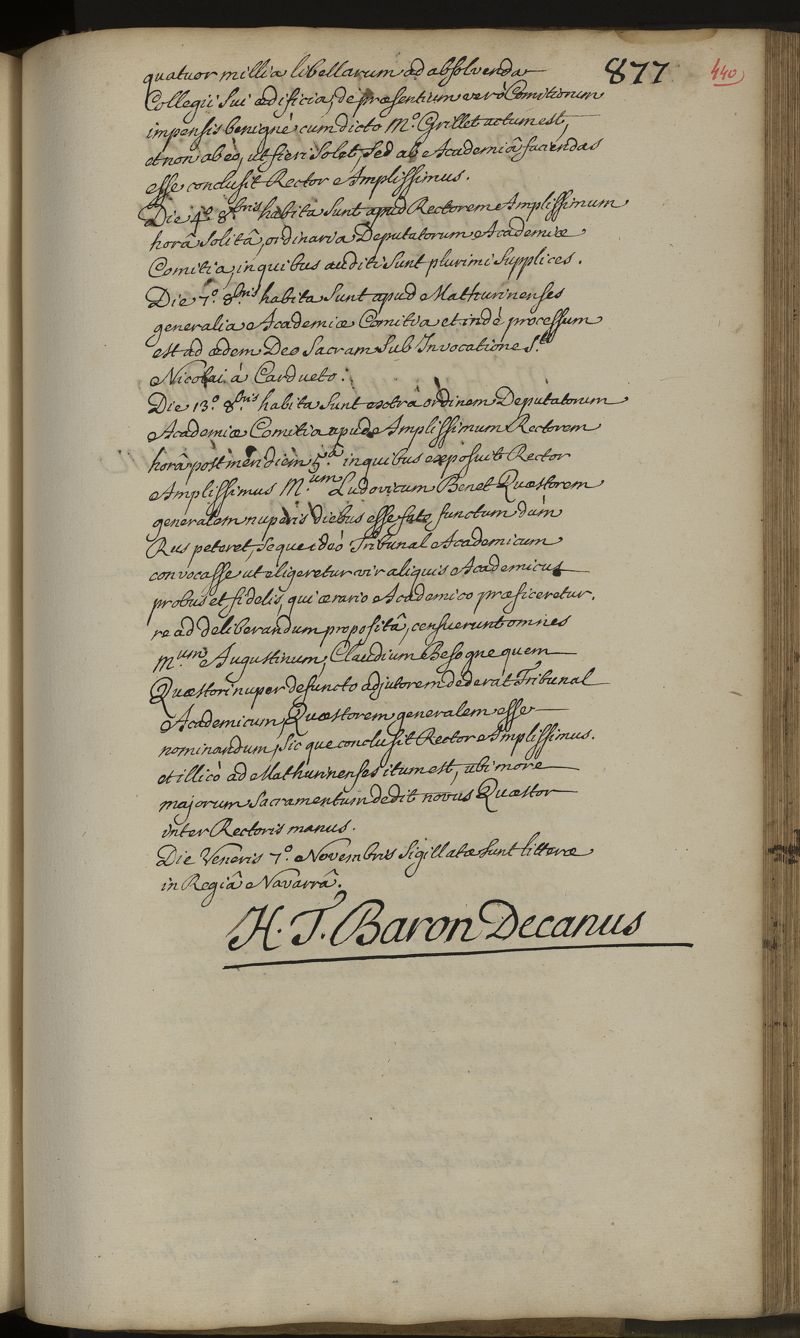 877
440
quatuor millia libellarum ad absolvenda
Collegii sui ædificia, de præsentium verò Comitiorum
impensis benignè cum dicto M.º Grillet actum est,
et non ab eo, ut fieri solet, sed ab Academiâ faciendas
esse conclusit Rector Amplissimus.
Die 4.º 8.bris habita sunt apud Rectorem Amplissimum
horâ solitâ, ordinaria Deputatorum Academiæ
Comitia, in quibus auditi sunt plurimi supplices.
Die 7.º 8.bris habita sunt apud Mathurinenses
generalia Academiæ Comitia et indè processum
est ad ædem Deo sacram sub Invocatione S.ti
Nicolai à Cardueto.
Die 13.º 8.bris habita sunt extrà ordinem Deputatorum
Academiæ Comitia apud Amplissimum Rectorem
horâ post meridiem 5.â in quibus exposuit Rector
Amplissimus M.um Ludovicum Benet Quæstorem
generalem nuperis diebus esse fato functum dùm
Rus peteret, seque ideò Tribunal Academicum
convocasse ut eligeretur vir aliquis Academicus
probus et fidelis, qui ærario Academico præficeretur.
re ad deliberandum propositâ, censuerunt omnes
M.um Augustinum, Claudium Besogne quem
Quæstori nuper defuncto adjutorem dederat Tribunal
Academicum, Quæstorem generalem esse
nominandum, sicque conclusit Rector Amplissimus.
et illicò ad Mathurinenses itum est, ubi more
majorum sacramentum dedit novus Quæstor
inter Rectoris manus.
Die Veneris 7.º Novembris sigillatæ sunt litteræ
in Regiâ Navarrâ.
H. T. Baron Decanus